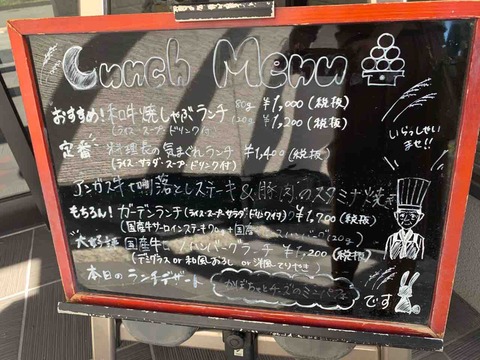 Lunch Menu
おすすめ！和牛焼しゃぶランチ 80g ¥1,000（税抜）
（ライス・スープ・ドリンク付） 120g ¥1,200（税抜）
いらっしゃいませ!!
定番 料理長の気まぐれランチ ¥1,400（税抜）
（ライス・サラダ・スープ・ドリンク付）
アンガス牛切り落としステーキ&豚肉のスタミナ焼き
もちろん！ガーデンランチ（ライス・スープ・サラダ・ドリンク付）¥1,700（税抜）
（国産牛サーロインステーキ ハンバーグ120g）
大好評 国産牛 ハンバーグランチ ¥1,200（税抜）
（デミグラス or 和風おろし or 洋風てりやき）
本日のランチデザート かぼちゃとチーズの です